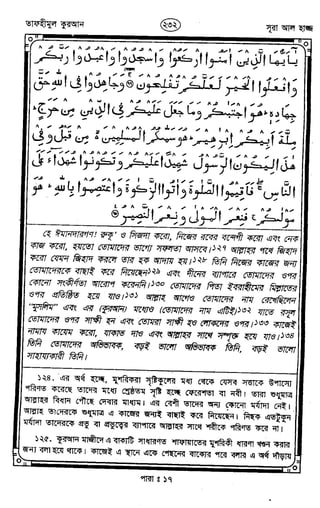 তাফহীমুল কুরআন
২৩২
সূরা আল হাজ্জ
يٰٓاَيُّهَا الَّذِيْنَ اٰمَنُوا ارْكَعُوْا وَاسْجُدُوْا وَاعْبُدُوْا رَبَّكُمْ
وَافْعَلُوا الْخَيْرَ لَعَلَّكُمْ تُفْلِحُوْنَ ۞ وَجَاهِدُوْا فِي اللهِ حَقَّ
جِهَادِهٖ ؕ هُوَ اجْتَبٰىكُمْ وَمَا جَعَلَ عَلَيْكُمْ فِي الدِّيْنِ مِنْ حَرَجٍ ؕ
مِلَّةَ اَبِيْكُمْ اِبْرٰهِيْمَ ؕ هُوَ سَمّٰىكُمُ الْمُسْلِمِيْنَ ۙ مِنْ قَبْلُ وَفِيْ
هٰذَا لِيَكُوْنَ الرَّسُوْلُ شَهِيْدًا عَلَيْكُمْ وَتَكُوْنُوْا شُهَدَآءَ عَلَى
النَّاسِ ۚ فَاَقِيْمُوا الصَّلٰوةَ وَاٰتُوا الزَّكٰوةَ وَاعْتَصِمُوْا بِاللهِ ؕ هُوَ
مَوْلٰىكُمْ ۚ فَنِعْمَ الْمَوْلٰى وَنِعْمَ النَّصِيْرُ ۞
হে ঈমানদারগণ! রুকূ' ও সিজদা করো, নিজের রবের বন্দেগী করো এবং নেক
কাজ করো, হয়তো তোমাদের ভাগ্যে সফলতা আসবে।১২৭ আল্লাহর পথে জিহাদ
করো যেমন জিহাদ করলে তার হক আদায় হয়।১২৮ তিনি নিজের কাজের জন্য
তোমাদেরকে বাছাই করে নিয়েছেন১২৯ এবং দীনের ব্যাপারে তোমাদের ওপর
কোনো সংকীর্ণতা আরোপ করেননি।১৩০ তোমাদের পিতা ইবরাহীমের মিল্লাতের
ওপর প্রতিষ্ঠিত হয়ে যাও।১৩১ আল্লাহ আগেও তোমাদের নাম রেখেছিলেন
"মুসলিম" এবং এর (কুরআন) মধ্যেও (তোমাদের নাম এটিই)১৩২ যাতে রসূল
তোমাদের ওপর সাক্ষী হন এবং তোমরা সাক্ষী হও লোকদের ওপর।১৩৩ কাজেই
নামায কায়েম করো, যাকাত দাও এবং আল্লাহর সাথে সম্পৃক্ত হয়ে যাও।১৩৪
তিনি তোমাদের অভিভাবক, বড়ই ভালো অভিভাবক তিনি, বড়ই ভালো
সাহায্যকারী তিনি।
১২৪. এর অর্থ হচ্ছে, মুশরিকরা সৃষ্টিকুলের মধ্য থেকে যেসব সত্তাকে উপাস্যে
পরিণত করেছে তাদের মধ্যে শ্রেষ্ঠতম সৃষ্টি হচ্ছে ফেরেশতা বা নবী। তারা শুধুমাত্র
আল্লাহর বিধান পৌঁছে দেবার মাধ্যম। এর বেশী তাদের অন্য কোনো মর্যাদা নেই।
আল্লাহ তাদেরকে শুধুমাত্র এ কাজের জন্যই বাছাই করে নিয়েছেন। নিছক এতটুকুন
মর্যাদা তাদেরকে প্রভু বা প্রভুত্বের ব্যাপারে আল্লাহর সাথে শরীকে পরিণত করে না।
১২৫. কুরআন মাজীদে এ বাক্যটি সাধারণত শাফায়াতের মুশরিকী ধারণা খণ্ডন করার
জন্য বলা হয়ে থাকে। কাজেই এ স্থানে একে পেছনের বাক্যের পরে বলার এ অর্থ দাঁড়ায়
পারা : ১৭